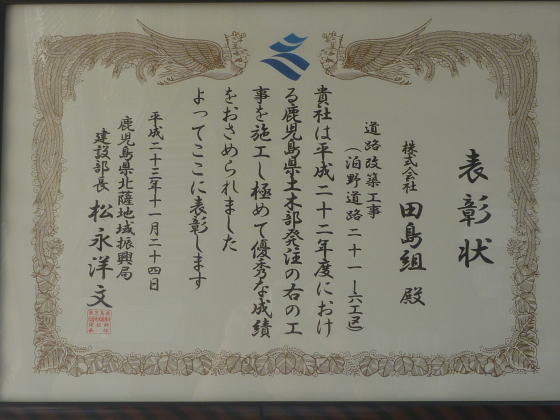 表彰状
株式会社 田島組 殿
道路改築工事
(泊野道路二十一-六工区)
貴社は平成二十二年度におけ
る鹿児島県土木部発注の右の工
事を施工し極めて優秀な成績
をおさめられました
よってここに表彰します
平成二十三年十一月二十四日
鹿児島県北薩地域振興局
建設部長 松永洋文